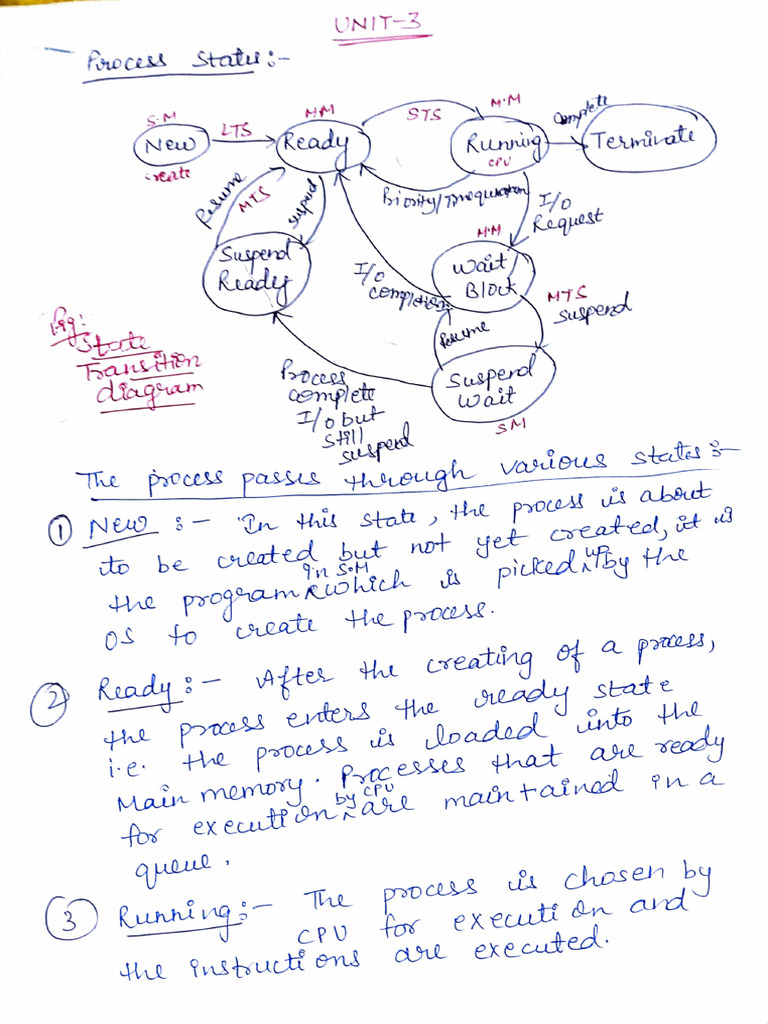 UNIT-3
Process States:-
S.M
New
create
LTS
MM
Ready
STS
M.M
Running
CPU
Complete
Terminate
Resume
MTS
suspend
Suspend
Ready
I/O
Request
M.M
Wait
Block
I/O
completion
MTS
suspend
Resume
Suspend
Wait
SM
Process
complete
I/O but
still
suspend
Fig:
State
Transition
diagram
The process passes through various states:-
① New :- In this state, the process is about
to be created but not yet created, it is
the program in S.M which is picked up by the
OS to create the process.
② Ready:- After the creating of a process,
the process enters the ready state
i.e. the process is loaded into the
Main memory. Processes that are ready
for execution by CPU are maintained in a
queue.
③ Running:- The process is chosen by
CPU for execution and
the instructions are executed.